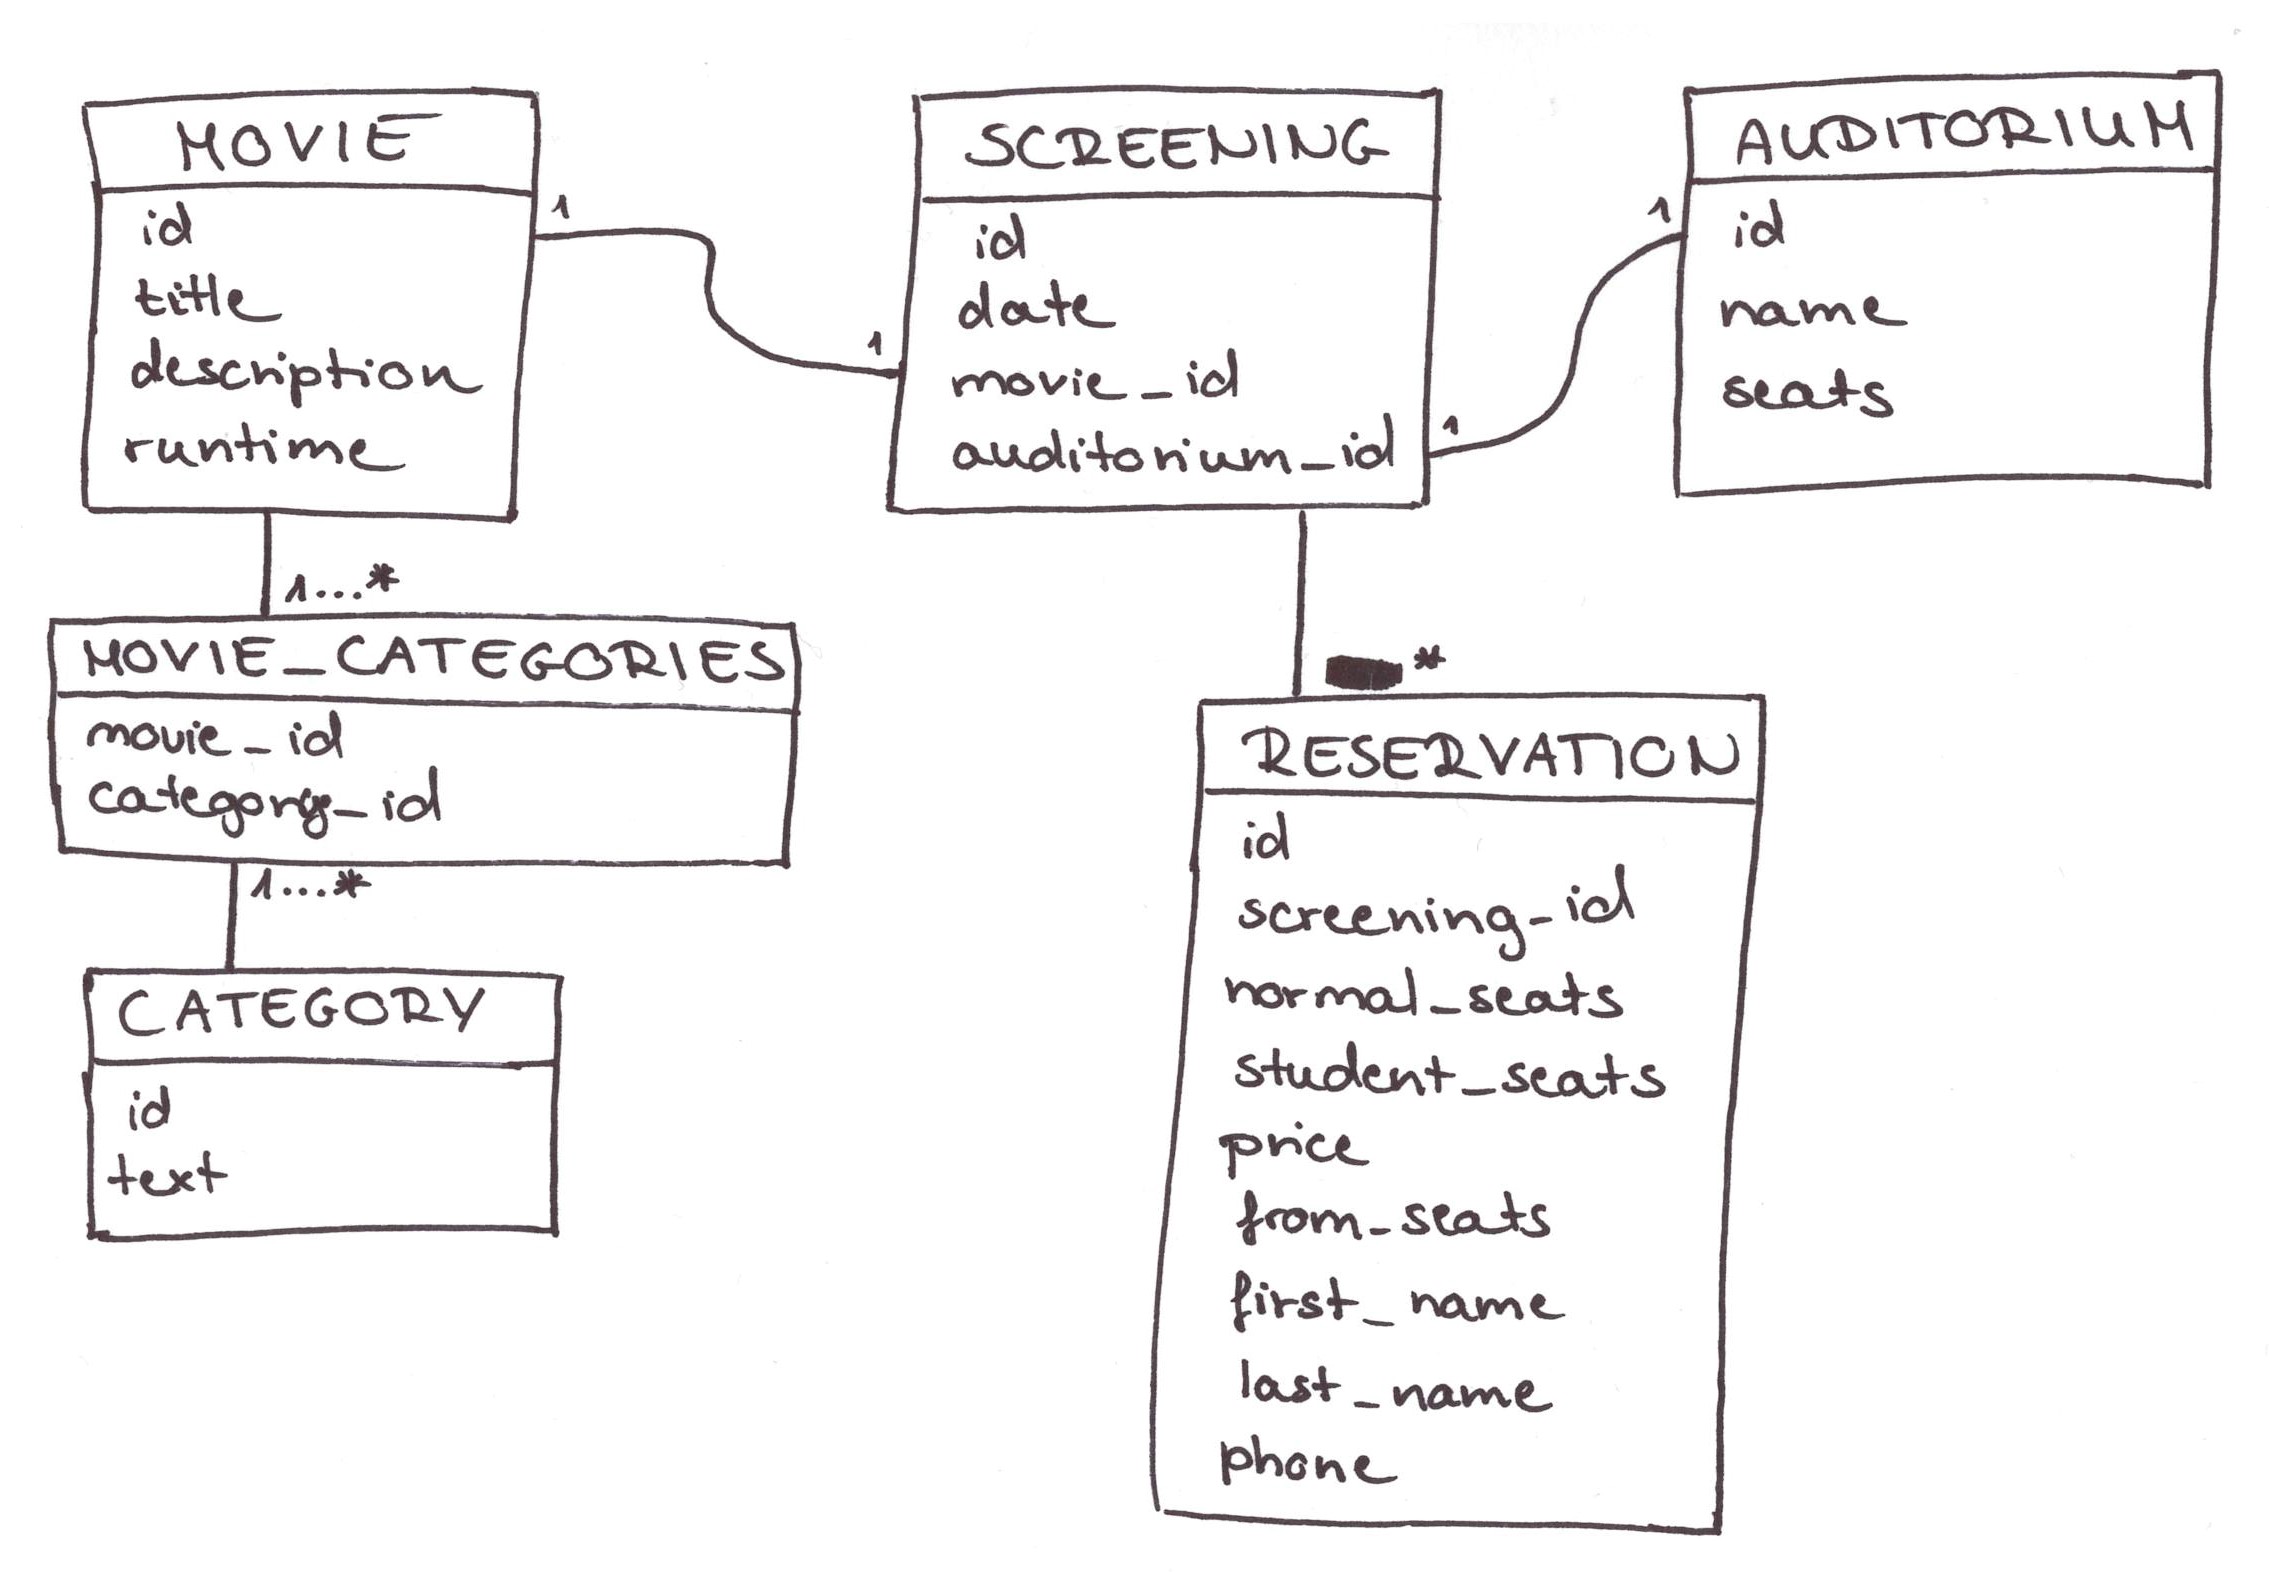 MOVIE
id
title
description
runtime
1
1
SCREENING
id
date
movie_id
auditorium_id
1
1
AUDITORIUM
id
name
seats
1...*
MOVIE_CATEGORIES
movie_id
category_id
1...*
CATEGORY
id
text
*
RESERVATION
id
screening_id
normal_seats
student_seats
price
from_seats
first_name
last_name
phone